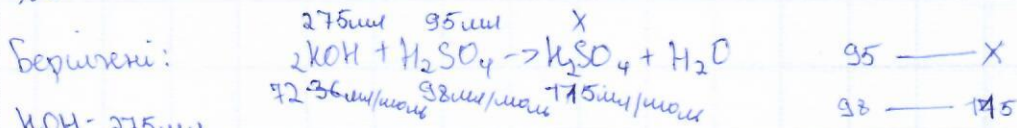 275мл 95мл X
Берілгені: 2KOH + H₂SO₄ -> H₂SO₄ + H₂O 95 — X
72 36мл/моль 98мл/моль 115мл/моль 98 — 115
KOH - 275мл